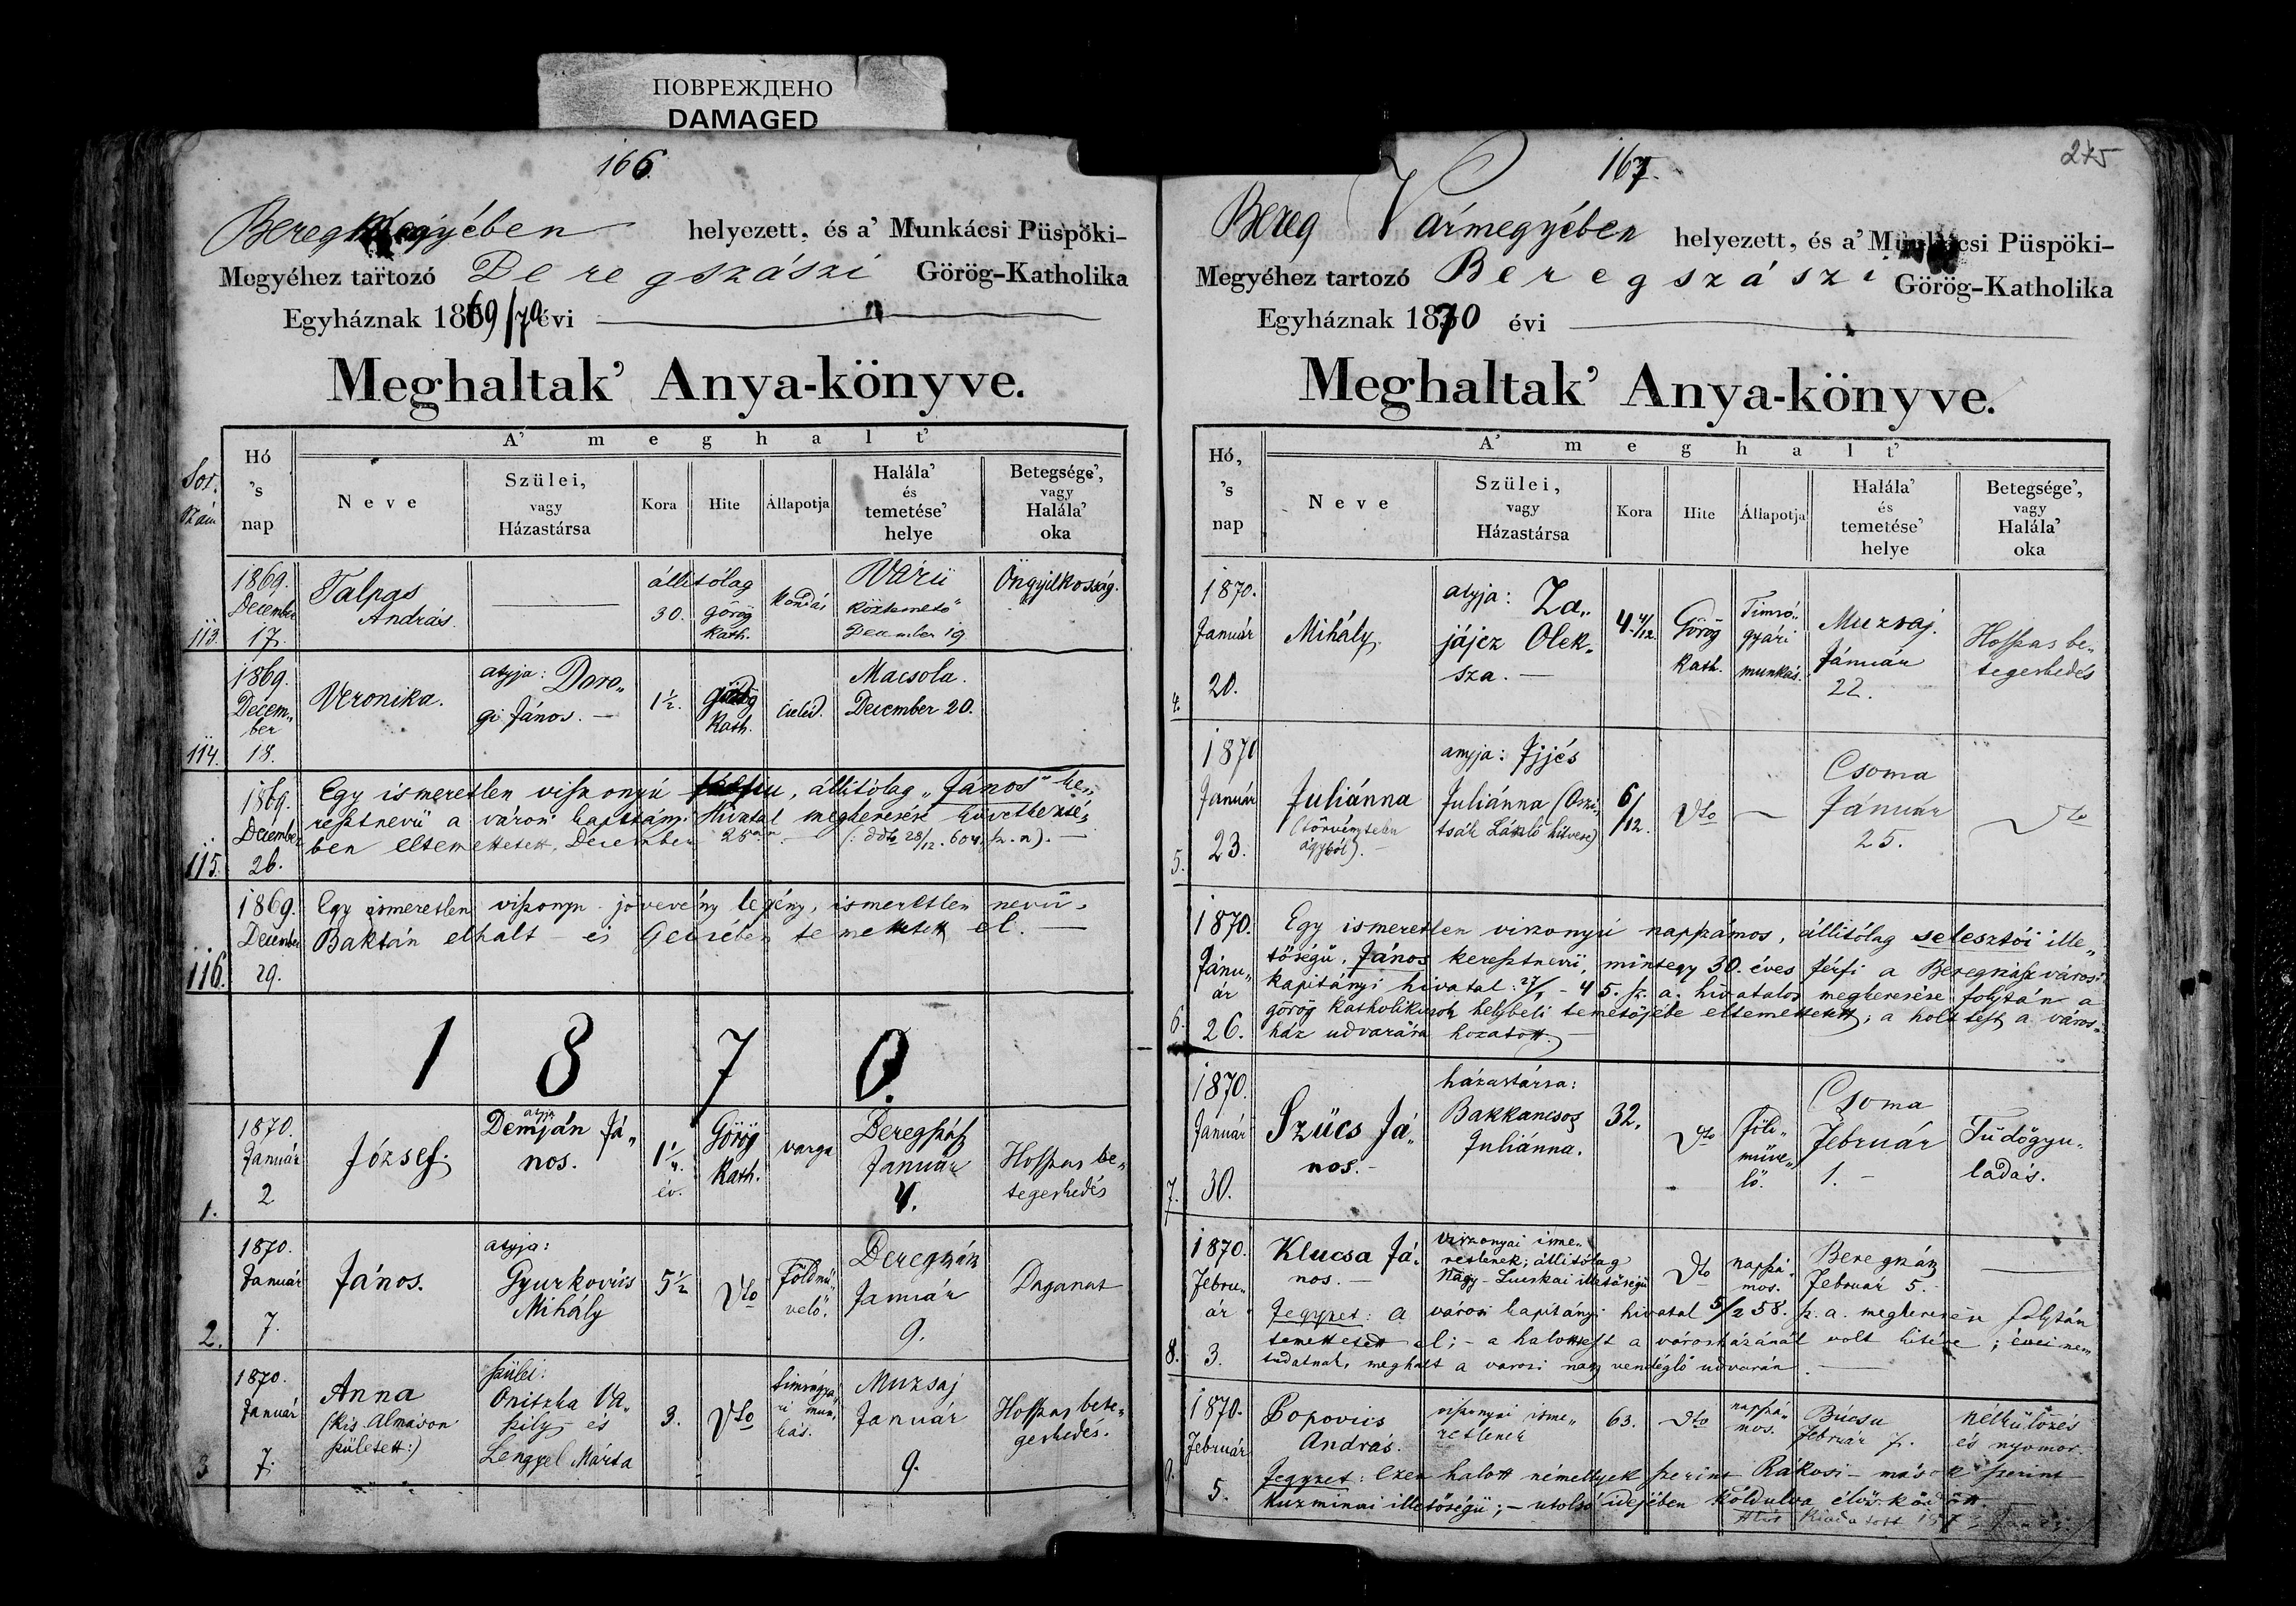 ПОВРЕЖДЕНО
DAMAGED
166.
Bereg megyében helyezett, és a' Munkácsi Püspöki-
Megyéhez tartozó Beregszászi Görög-Katholika
Egyháznak 1869/70 évi
Meghaltak' Anya-könyve.
A' meghalt'
Sor. szám
Hó 's nap
Neve
Szülei, vagy Házastársa
Kora
Hite
Állapotja
Halála' és temetése' helye
Betegsége', vagy Halála' oka
113. 1869. December 17. Talpas András. állitólag 30. Görög Kath. Kondás Vári köztemető December 19 Öngyilkosság.
114. 1869. December 18. Veronika. atyja: Daro„gi János. 1½. Görög Kath. cseléd. Macsola. December 20.
115. 1869. December 26.
Egy ismeretlen viszonyú , állitólag „János" ke„
resztnevü a városi kapitányi Hivatal megkeresése következté„
ben eltemettetett, December (: ddto 28/12. 604. sz. a).
116. 1869. December 29.
Egy ismeretlen viszonyu jövevény legény, ismeretlen nevü
Baktán elhalt és temettetett el.
1870.
1. 1870. Január 2 József. atyja Demján Já„nos. 1¼. év. Görög Kath. varga Beregszász Január 4. Hosszas be„tegeskedés
2. 1870. Január 7. János. atyja: Gyurkovics Mihály 5½ dto Földmü„velő. Beregszász Január 9. Daganat
3 1870. Január 7. Anna (Kis Almáson született:) szülei: Onitzka Va„szily és Lengyel Márta 3. dto timsógyá„ri mun„kás. Muzsaj Január 9. Hosszas bete„geskedés.
167.
275
Bereg Vármegyében helyezett, és a' Munkácsi Püspöki-
Megyéhez tartozó Beregszászi Görög-Katholika
Egyháznak 1870 évi
Meghaltak' Anya-könyve.
A' meghalt'
Hó, 's nap
Neve
Szülei, vagy Házastársa
Kora
Hite
Állapotja
Halála' és temetése' helye
Betegsége', vagy Halála' oka
4. 1870. Január 20. Mihály. atyja: Za„jájcz Olek„sza. 4 4/12. Görög Kath. Timsó„gyári munkás. Muzsaj. Január 22. Hosszas be„tegeskedés
5. 1870 Január 23. Juliánna (törvénytelen ágyból). anyja: Ijjés Juliánna ( László hitvese) 6/12. dto Csoma Január 25. dto
6. 1870. Janu„ár 26.
Egy ismeretlen viszonyú napszámos, állitólag selesztói ille„
tőségü, János keresztnevü, mintegy 30. éves férfi a Beregszász városi
kapitányi hivatal: 27/1 - 45. sz. a. hivatalos megkeresése folytán a
görög katholikusok helybeli temetőjébe eltemettetett; a holt test a város„
ház udvarára hozatott.
7. 1870. Január 30. Szücs Já„nos. házastársa: Bakkancsos Juliánna. 32. dto föld„müve„lő. Csoma Február 1. Tüdőgyu„ladás.
8. 1870. Febru„ár 3. Klucsa Já„nos. viszonyai isme„retlenek; állitólag Nagy-Lucskai illetőségü dto napszá„mos. Beregszász Február 5.
Jegyzet: A városi kapitányi hivatal 5/2 58. sz. a. megkeresése folytán
temettetett el; - a halottest a városházánál volt kitéve; évei nem
tudatnak, meghalt a városi nagy vendéglő udvarán.
9. 1870. Február 5. Popovics András. viszonyai isme„retlenek 63. dto napszá„mos. Bucsu Február 7. nélkülözés és nyomor.
Jegyzet: Ezen halott némellyek szerint Rákosi - mások szerint
Kuzminai illetőségü; - utolsó idejében koldulva élősködött.